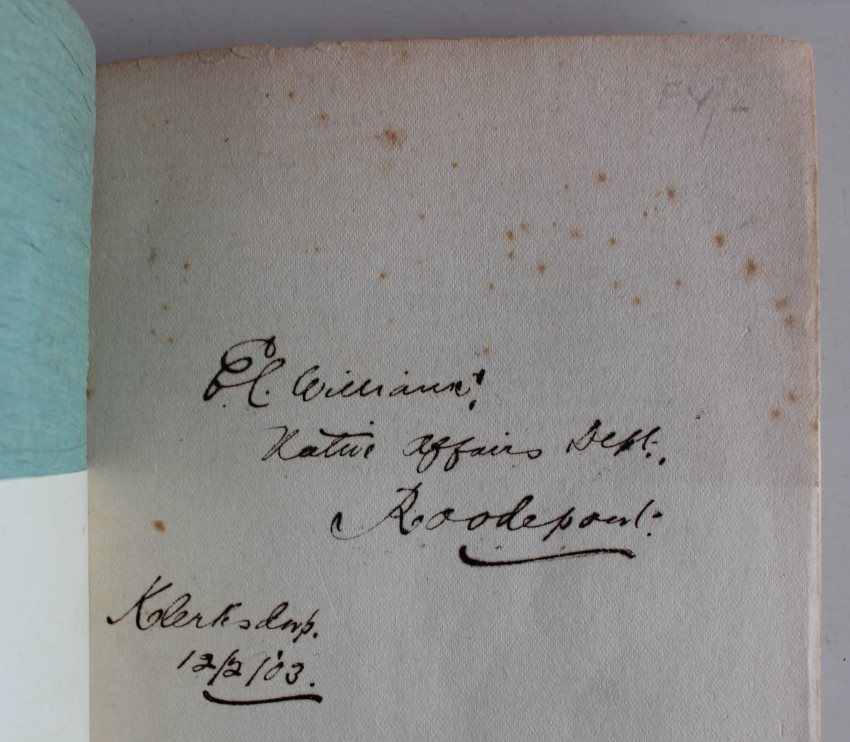 E.C. Williams.
Native Affairs Dept.,
Roodepoort.
Klerksdorp.
12/2/03.